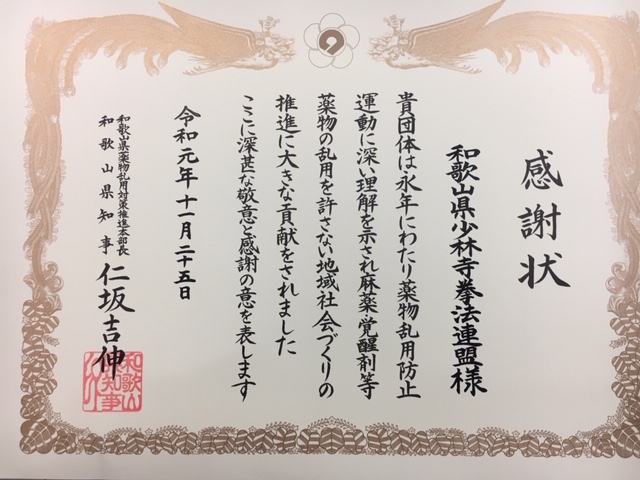 感謝状
和歌山県少林寺拳法連盟様
貴団体は永年にわたり薬物乱用防止
運動に深い理解を示され麻薬・覚醒剤等
薬物の乱用を許さない地域社会づくりの
推進に大きな貢献をされました
ここに深甚な敬意と感謝の意を表します
令和元年十一月二十五日
和歌山県薬物乱用対策推進本部長
和歌山県知事 仁坂吉伸
和歌山
県知事
之印